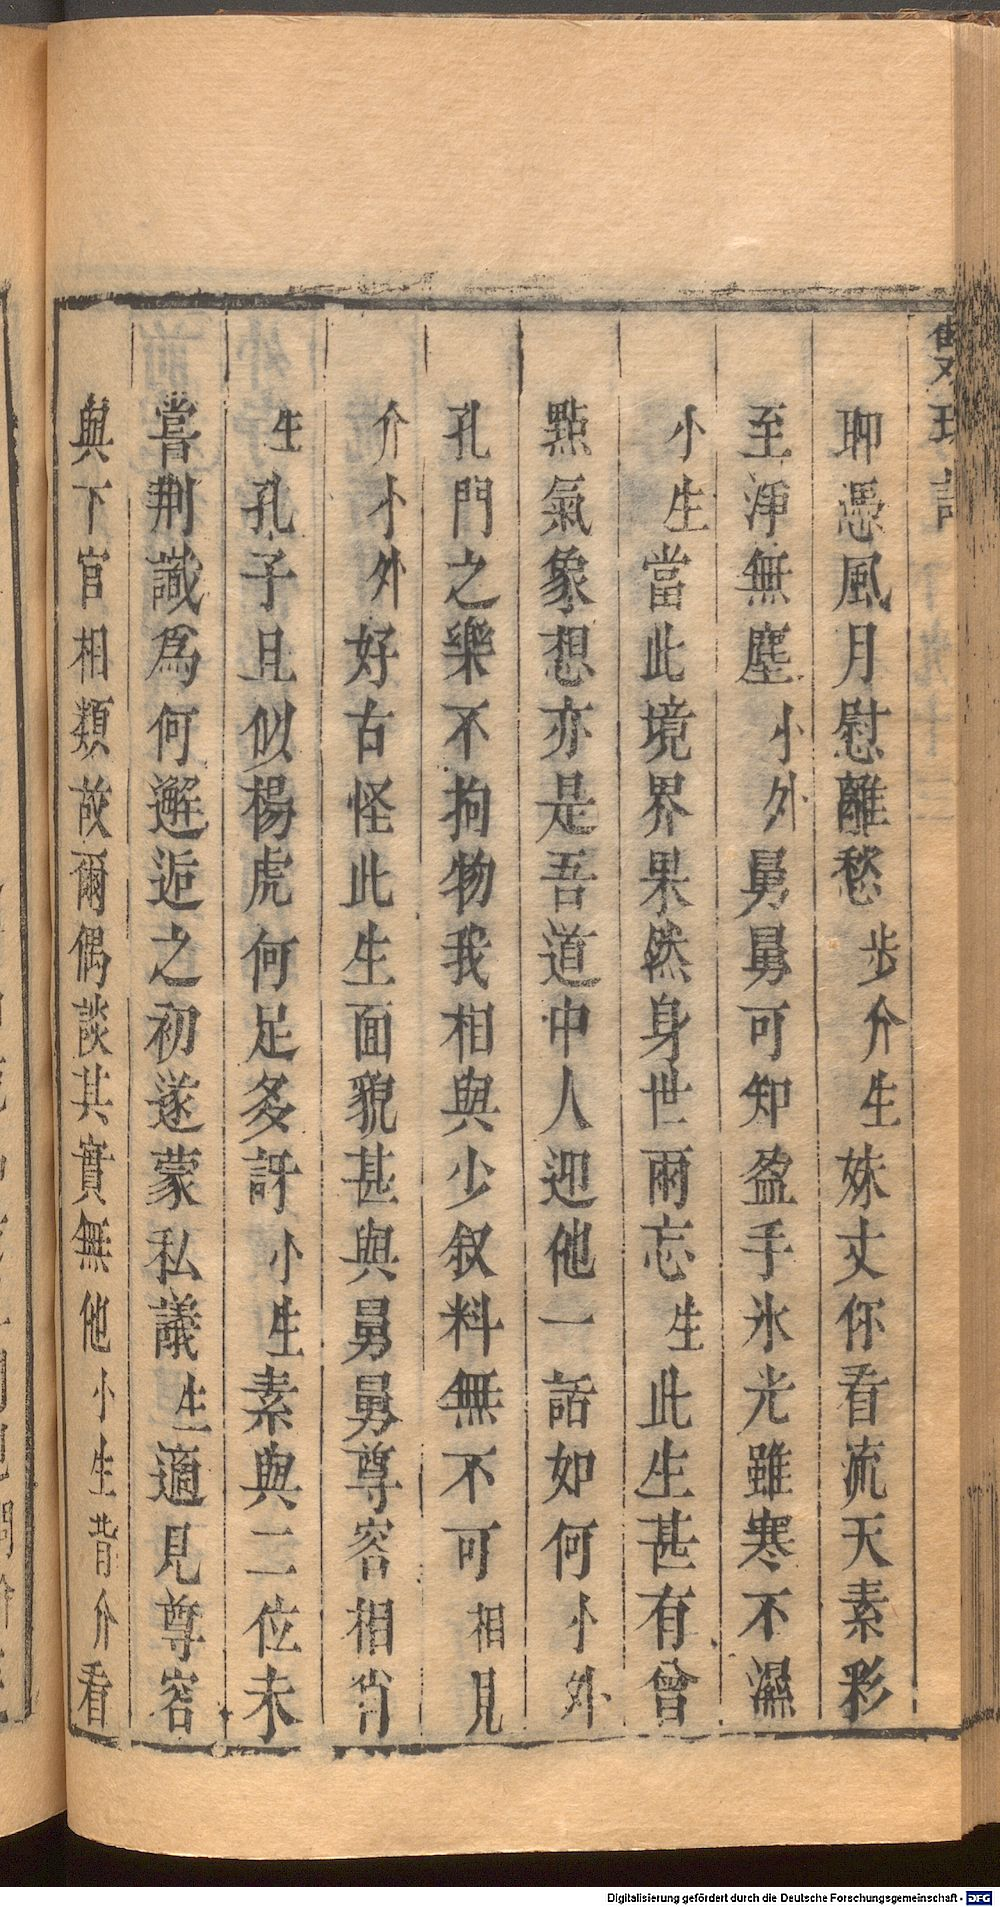 聊憑風月慰離愁步介生妹丈你看流天素彩
至淨無塵小外舅舅可知盈手氷光雖寒不濕
小生當此境界果然身世爾忘生此生甚有曾
點氣象想亦是吾道中人迎他一話如何小外
孔門之樂不拘物我相與少叙料無不可相見
介小外好古怪此生面貌甚與舅舅尊容相肖
生孔子且似楊虎何足多訝小生素與二位未
嘗荆識爲何邂逅之初遂蒙私議生適見尊容
與下官相類故爾偶談其實無他小生背介看
Digitalisierung gefördert durch die Deutsche Forschungsgemeinschaft - DFG